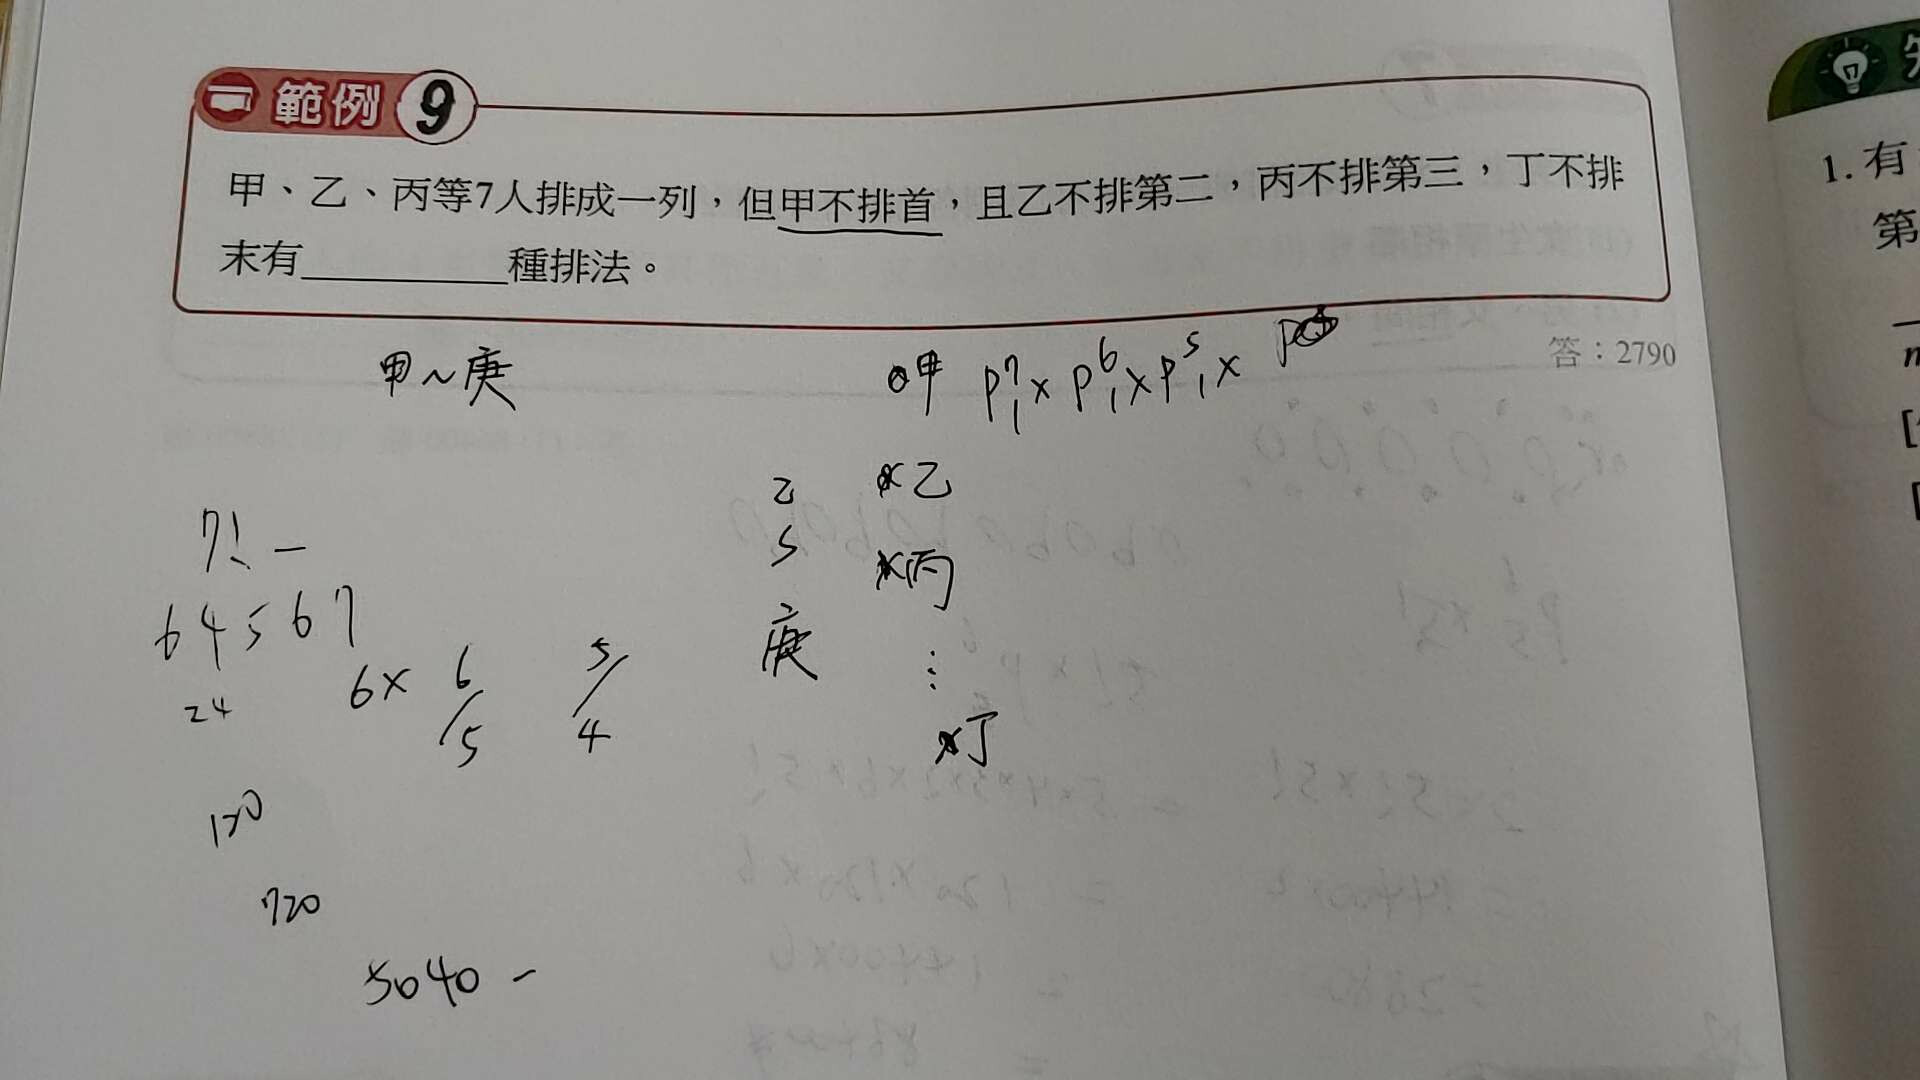 範例 9
甲、乙、丙等7人排成一列，但甲不排首，且乙不排第二，丙不排第三，丁不排
末有＿＿＿＿＿種排法。
答：2790
甲～庚
甲 P⁷₁ × P⁶₁ × P⁵₁ × P
乙 ×乙
7! －
5 ×丙
6 4 5 6 7
庚 ⋮
24 6× 6/5 5/4
×丁
120
720
5040 －
1. 有
第